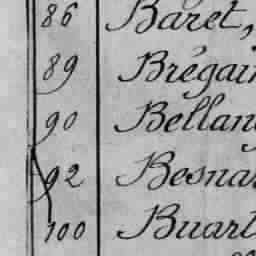 86 Baret,
89 Brégain
90 Bellan
92 Besna
100 Buart